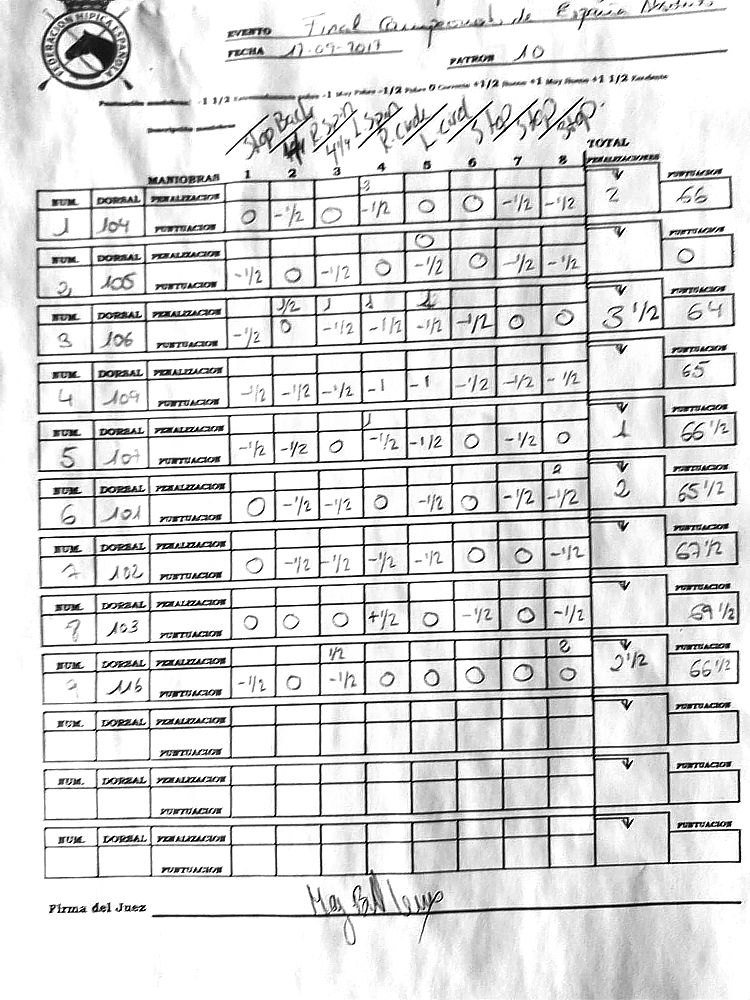 FEDERACION HIPICA ESPAÑOLA
EVENTO Final Campeonato de España
FECHA 17-09-2017 PATRON 10
-1 1/2 Extremadamente pobre -1 Muy Pobre -1/2 Pobre 0 Correcto +1/2 Bueno +1 Muy Bueno +1 1/2 Excelente
Descripción maniobras
Stop Back 4 1/4 R Spin 4 1/4 L Spin R. Circle L. Circl Stop Stop Stop.
TOTAL
MANIOBRAS 1 2 3 4 5 6 7 8 PENALIZACIONES PUNTUACION
NUM. DORSAL PENALIZACION 3
1 104 PUNTUACION 0 -1/2 0 -1/2 0 0 -1/2 -1/2 2 66
NUM. DORSAL PENALIZACION 0 PUNTUACION
2 105 PUNTUACION -1/2 0 -1/2 0 -1/2 0 -1/2 -1/2 0
NUM. DORSAL PENALIZACION 1/2 1 1 1 PUNTUACION
3 106 PUNTUACION -1/2 0 -1/2 -1/2 -1/2 -1/2 0 0 3 1/2 64
NUM. DORSAL PENALIZACION PUNTUACION
4 109 PUNTUACION -1/2 -1/2 -1/2 -1 -1 -1/2 -1/2 -1/2 65
NUM. DORSAL PENALIZACION 1 PUNTUACION
5 107 PUNTUACION -1/2 -1/2 0 -1/2 -1/2 0 -1/2 0 1 66 1/2
NUM. DORSAL PENALIZACION 2 PUNTUACION
6 101 PUNTUACION 0 -1/2 -1/2 0 -1/2 0 -1/2 -1/2 2 65 1/2
NUM. DORSAL PENALIZACION PUNTUACION
7 102 PUNTUACION 0 -1/2 -1/2 -1/2 -1/2 0 0 -1/2 67 1/2
NUM. DORSAL PENALIZACION PUNTUACION
8 103 PUNTUACION 0 0 0 +1/2 0 -1/2 0 -1/2 69 1/2
NUM. DORSAL PENALIZACION 1/2 2 PUNTUACION
9 116 PUNTUACION -1/2 0 -1/2 0 0 0 0 0 2 1/2 66 1/2
NUM. DORSAL PENALIZACION PUNTUACION
PUNTUACION
NUM. DORSAL PENALIZACION PUNTUACION
PUNTUACION
NUM. DORSAL PENALIZACION PUNTUACION
PUNTUACION
Firma del Juez